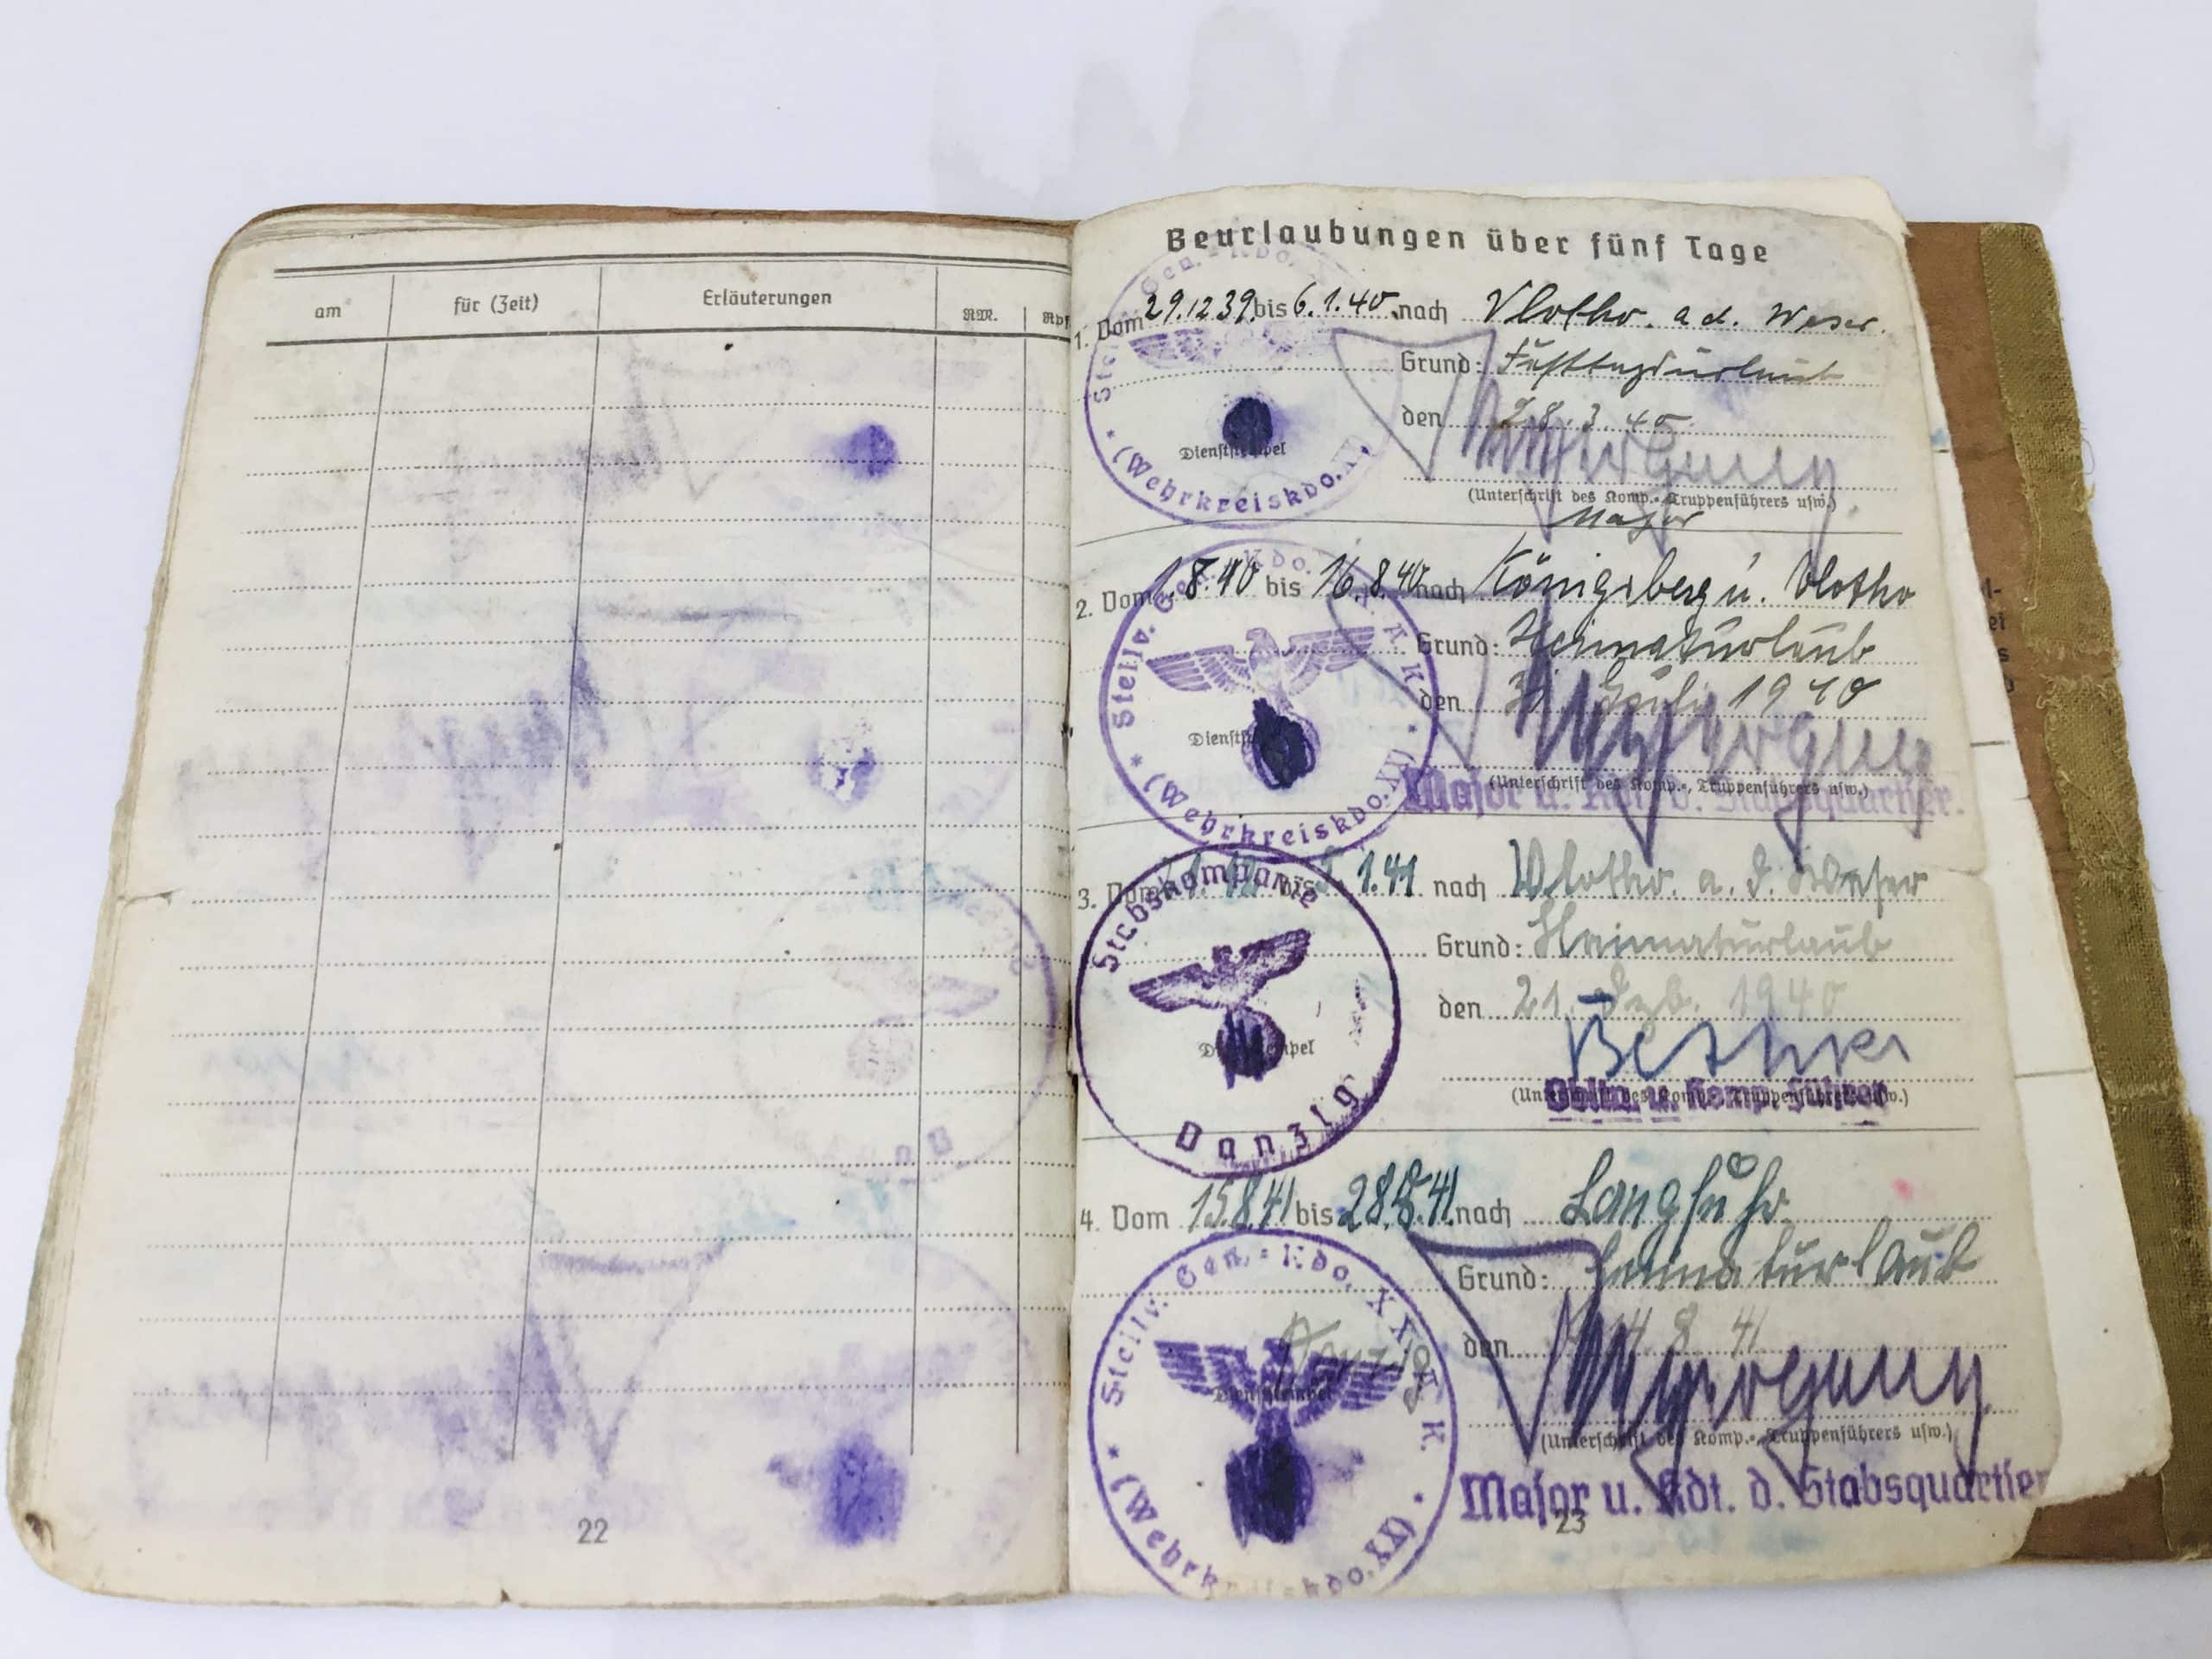 am
für (Zeit)
Erläuterungen
RM.
Rpf
22
Beurlaubungen über fünf Tage
1. Vom 29.12.39 bis 6.1.40 nach Vlotho. a. d. Weser.
Grund: Festtagsurlaub
den 28.3.40.
Dienststempel
(Unterschrift des Komp.-, Truppenführers usw.)
Major
Stellv. Gen.-Kdo.
* (Wehrkreiskdo.
2. Vom 1.8.40 bis 16.8.40 nach Königsberg u. Vlotho
Grund: Heimaturlaub
den Juli 1940
(Unterschrift des Komp.-, Truppenführers usw.)
Major u. Kdt. d. Stabsquartier.
* Stellv. Gen. Kdo. A. K. *
(Wehrkreiskdo. XX)
3. Vom bis 1.41 nach Vlotho. a. d. Weser
Grund: Heimaturlaub
den 21. Dzb. 1940
Dienststempel
Bethke
(Unterschrift des Komp.-, Truppenführers usw.)
Oblt. u. Komp. Führer
Stabskompanie
Danzig
4. Vom 15.8.41 bis 28.8.41 nach Langfuhr
Grund: Heimaturlaub
Danzig den 14.8.41
Dienststempel
(Unterschrift des Komp.-, Truppenführers usw.)
Major u. Kdt. d. Stabsquartier
* Stellv. Gen.-Kdo. XX. A. K. *
(Wehrkreiskdo. XX)
23